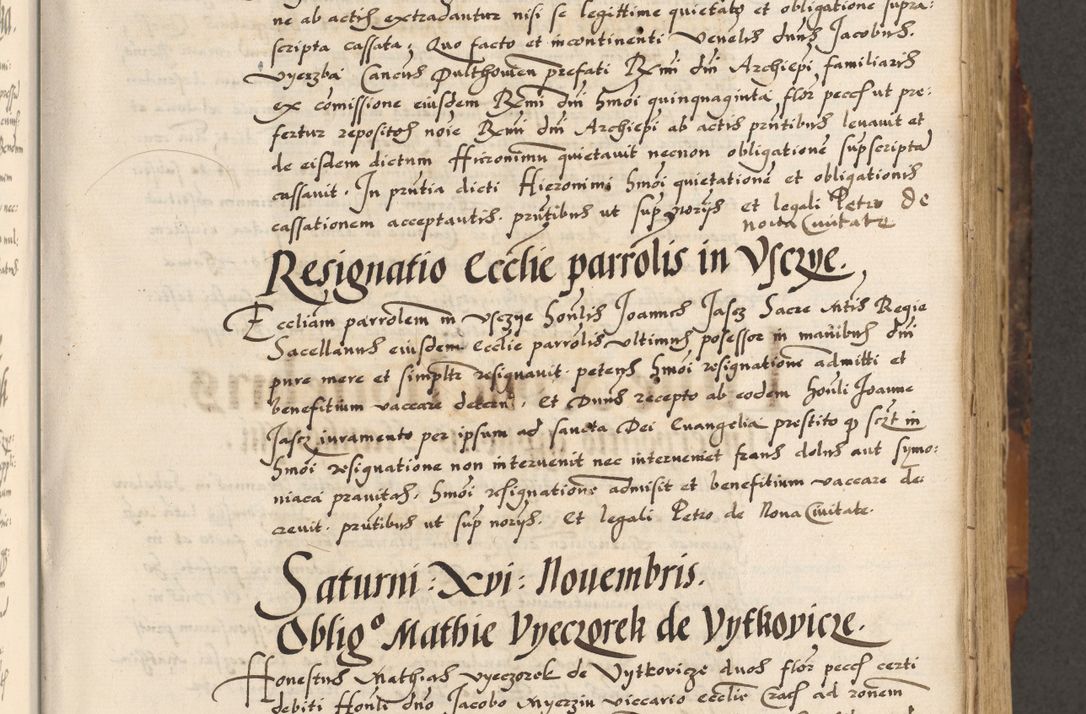 ne ab actis extradantur nisi se legittime quietato et obligatione supra:
scripta cassata; Quo facto et incontinenti Venelis duns Jacobus
Vyerzba Cancus Pulthouien prefati Rmi dni Archiepi familiaris
ex comissione eiusdem Rmi dni hmoi quinquaginta flor pecch ut pre:
fertur repositos noie Rmi dni Archiepi ab actis prntibus levauit et
de eisdem dictum Hieronimu quietauit necnon obligatione supscripta
cassauit. In prntia dicti Hieronimi hmoi quietatione et obligationis
cassationem acceptantis. prntibus ut sup noryis et legali Petro de
noua Ciuitate
Resignatio Ecclie parrolis in Vsczye.
Eccliam parrolem in Vsczye honlis Joannes Jasch Sacre Mtis Regie
Sacellanus eiusdem Ecclie parrolis vltimus posessor in manibus dni
pure mere et simplr resignauit. petens hmoi resignatione admitti et
benefitium vaccare decerni. Et Duns recepto ab eodem honli Joanne
Jasch iuramento per ipsum ad sancta Dei Euangelia prestito q sczt in
hmoi resignatione non interuenit nec interueniet fraus dolus aut symo:
niaca prauitas. hmoi resignatione admisit et benefitium vaccare de
creuit. prntibus ut sup noryis. Et legali Petro de Noua Ciuitate.
Saturni: Xvi: Nouembris.
Oblig° Mathie Vyeczorek de Vytkovicze.
Honestus Mathias Vyeczorek de Vytkovicze duos flor pecch certi
debiti Honli dno Jacobo Myerzin viccario ecclie Crach ad ronem